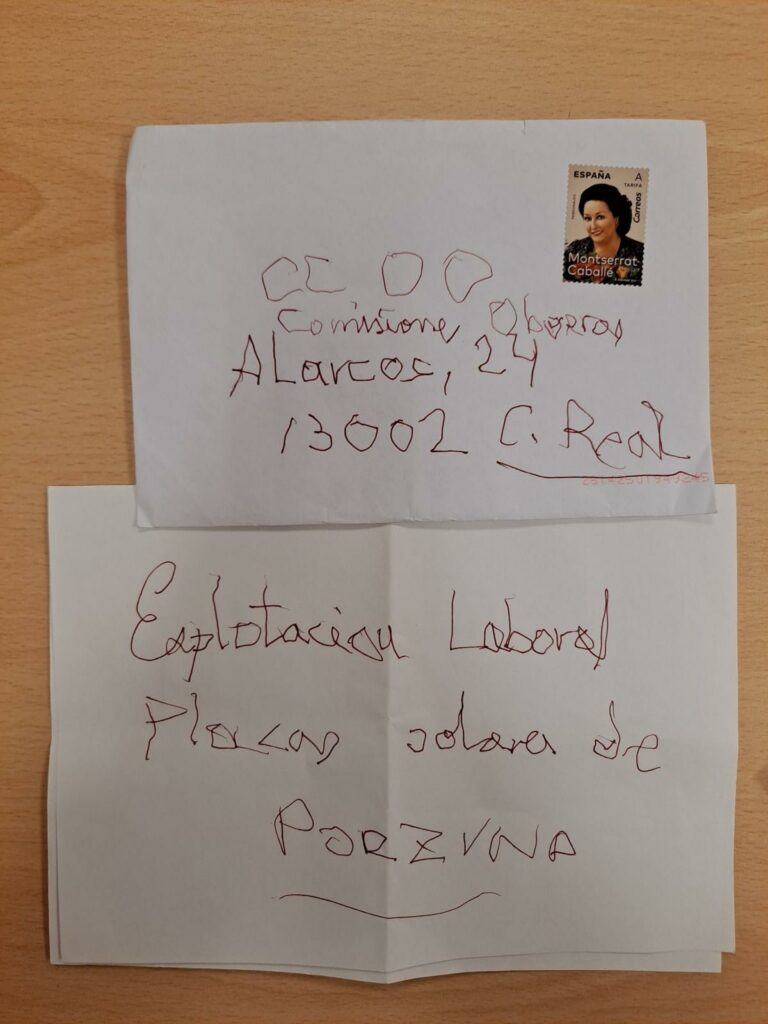 ESPAÑA
A
TARIFA
Correos
Montserrat
Caballé
CC OO
Comisione Obreras
ALarcos, 24
13002 C. Real
Explotacion Laboral
Placas solares de
PORZUNA